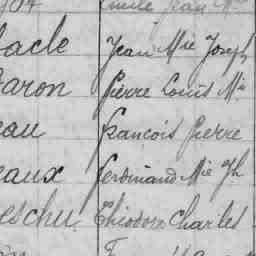 Emile Jean Mie
acle Jean Mie Joseph
aron Pierre Louis Mie
eau François Pierre
eaux Ferdinand Mie Jh
eschu Théodore Charles